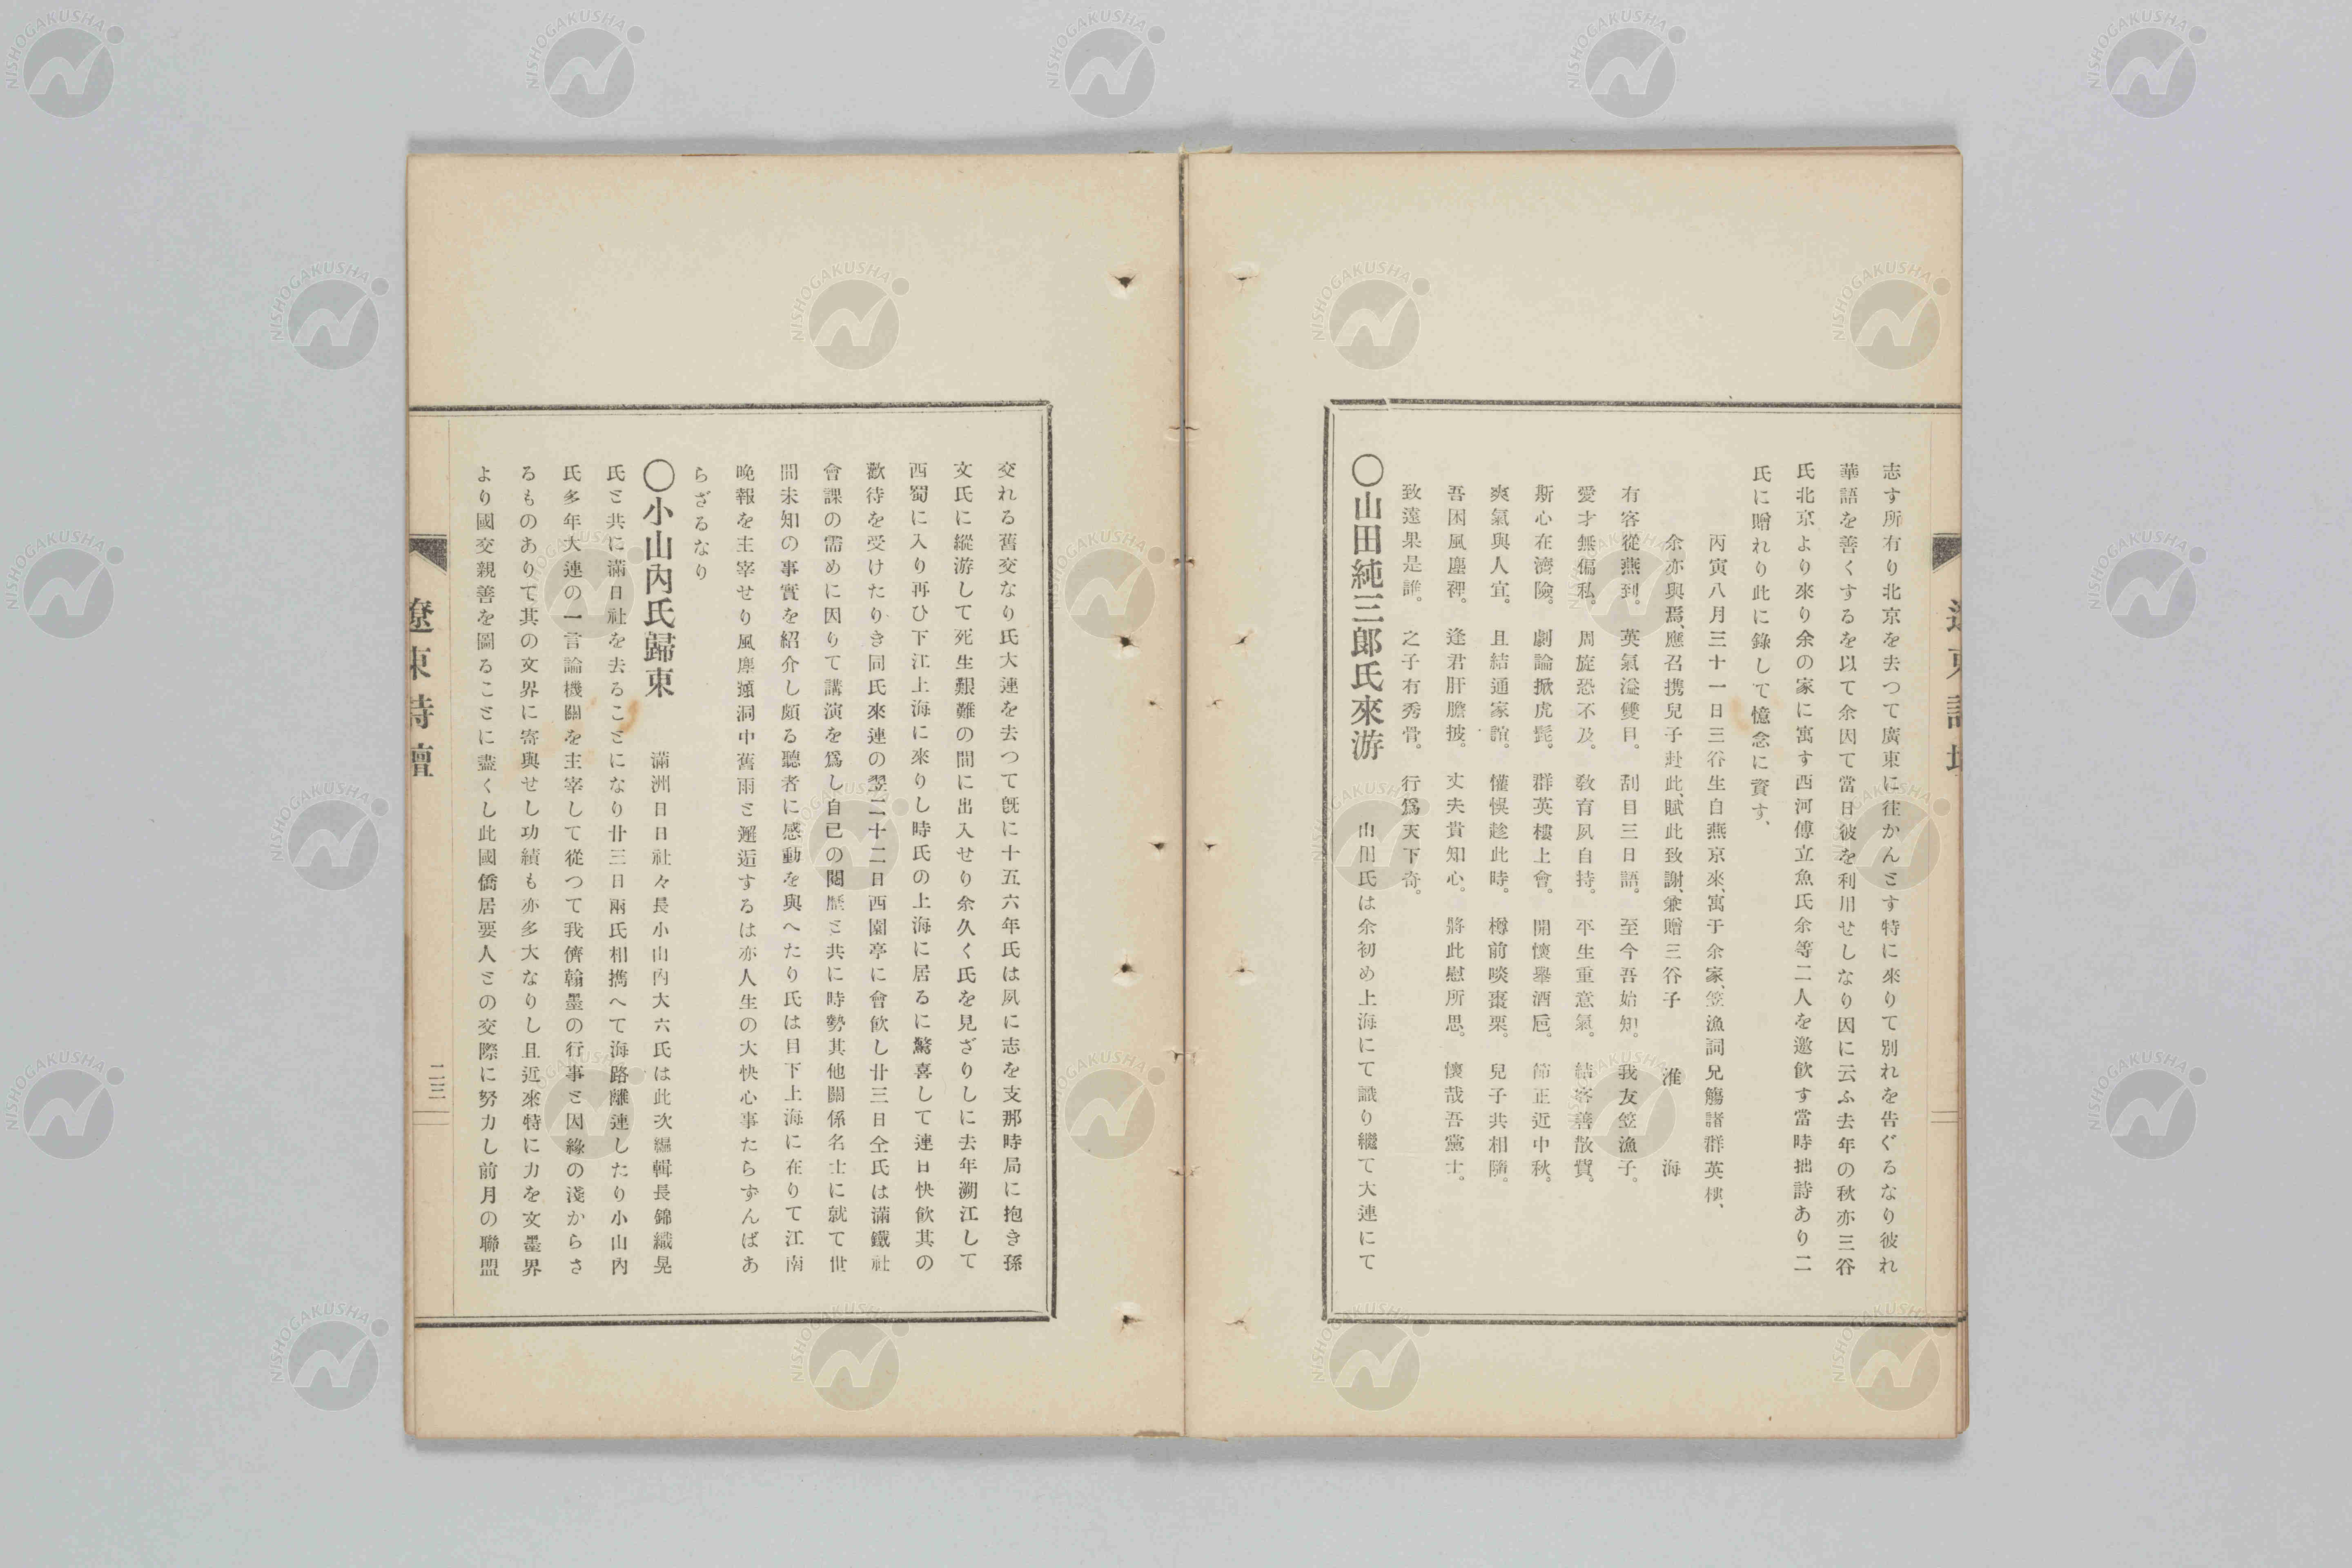 志す所有り北京を去つて廣東に往かんとす特に來りて別れを告ぐるなり彼れ
華語を善くするを以て余因て當日彼を利用せしなり因に云ふ去年の秋亦三谷
氏北京より來り余の家に寓す西河傅立魚氏余等二人を邀飲す當時拙詩あり二
氏に贈れり此に錄して憶念に資す、
丙寅八月三十一日三谷生自燕京來、寓于余家、笠漁詞兄觴諸群英樓、
余亦與焉、應召携兒子赴此、賦此致謝、兼贈三谷子 淮海
有客從燕到。英氣溢雙目。刮目三日語。至今吾始知。我友笠漁子。
愛才無偏私。周旋恐不及。教育夙自持。平生重意氣。結客善散貲。
斯心在濟險。劇論掀虎髭。群英樓上會。開懷擧酒巵。節正近中秋。
爽氣與人宜。且結通家誼。懽悞趁此時。樽前啖棗栗。兒子共相隨。
吾困風塵裡。逢君肝膽披。丈夫貴知心。將此慰所思。懷哉吾黨士。
致遠果是誰。之子有秀骨。行爲天下奇。
〇山田純三郎氏來游 山田氏は余初め上海にて識り繼て大連にて
交れる舊交なり氏大連を去つて旣に十五六年氏は夙に志を支那時局に抱き孫
文氏に縱游して死生艱難の間に出入せり余久く氏を見ざりしに去年溯江して
西蜀に入り再ひ下江上海に來りし時氏の上海に居るに驚喜して連日快飲其の
歡待を受けたりき同氏來連の翌二十二日西園亭に會飲し廿三日仝氏は滿鐵社
會課の需めに因りて講演を爲し自己の閱歷と共に時勢其他關係名士に就て世
間未知の事實を紹介し頗る聽者に感動を與へたり氏は目下上海に在りて江南
晩報を主宰せり風塵澒洞中舊雨と邂逅するは亦人生の大快心事たらずんばあ
らざるなり
〇小山內氏歸東 滿洲日日社々長小山內大六氏は此次編輯長錦織晃
氏と共に滿日社を去ることになり廿三日兩氏相携へて海路離連したり小山內
氏多年大連の一言論機關を主宰して從つて我儕翰墨の行事と因緣の淺からさ
るものありて其の文界に寄與せし功績も亦多大なりし且近來特に力を文墨界
より國交親善を圖ることに盡くし此國僑居要人との交際に努力し前月の聯盟
遼東詩壇
二三